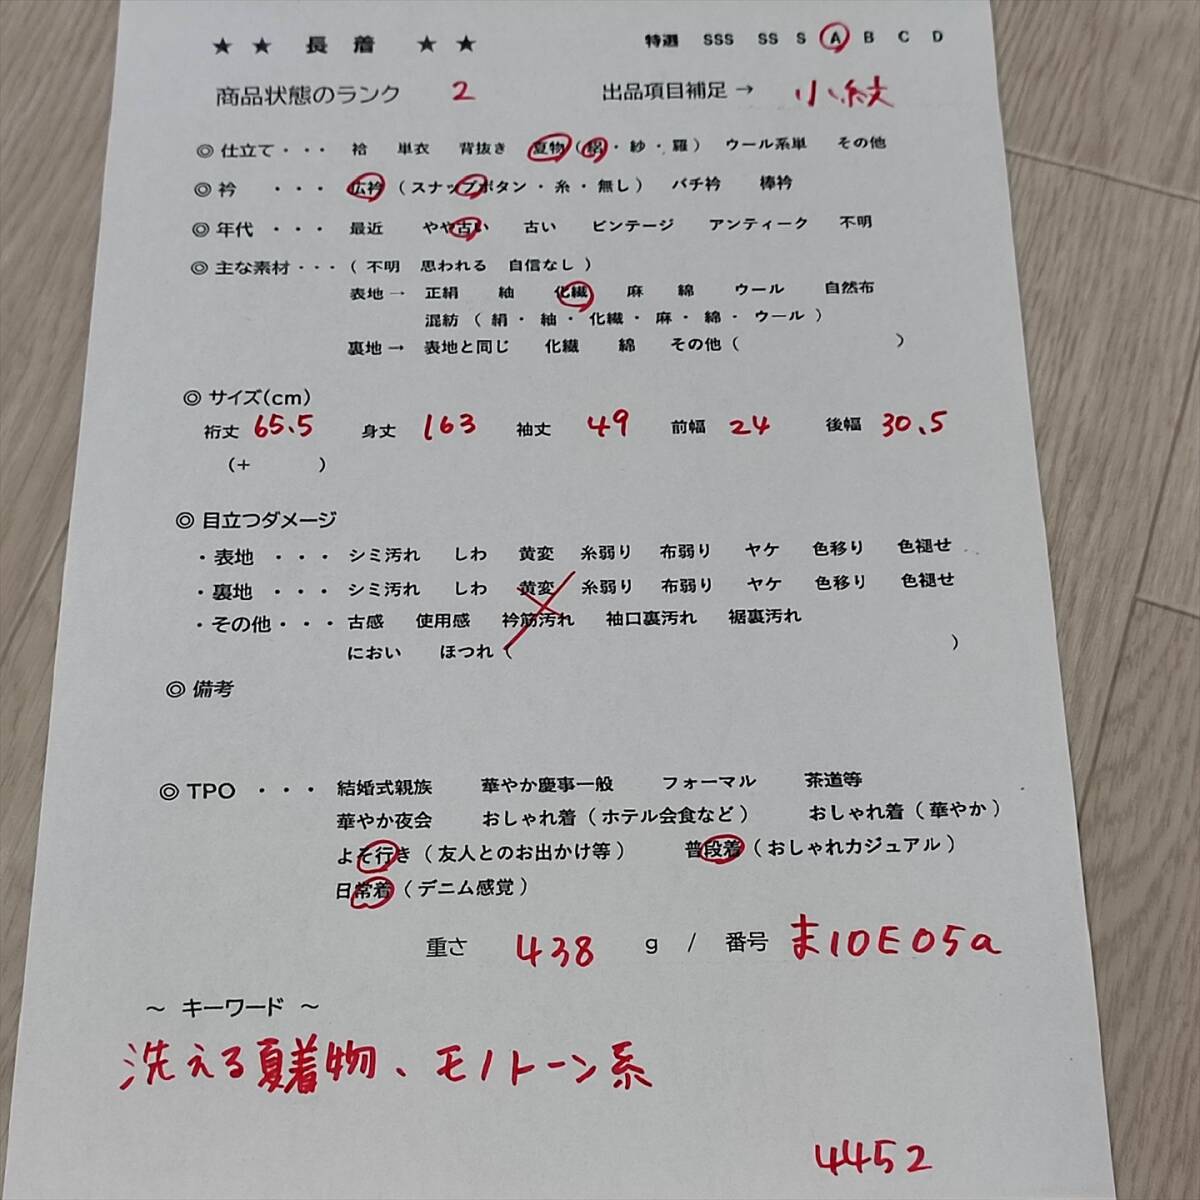 ★ ★ 長 着 ★ ★ 特選 SSS SS S A B C D
商品状態のランク 2 出品項目補足→ 小紋
◎ 仕立て・・・ 袷 単衣 背抜き 夏物（絽・紗・羅） ウール系単 その他
◎ 衿 ・・・ 広衿（スナップボタン・糸・無し） バチ衿 棒衿
◎ 年代 ・・・ 最近 やや古い 古い ビンテージ アンティーク 不明
◎ 主な素材・・・（ 不明 思われる 自信なし ）
表地→ 正絹 紬 化繊 麻 綿 ウール 自然布
混紡（ 絹・紬・化繊・麻・綿・ウール ）
裏地→ 表地と同じ 化繊 綿 その他（ ）
◎ サイズ(cm)
裄丈 65.5 身丈 163 袖丈 49 前幅 24 後幅 30.5
（+ ）
◎ 目立つダメージ
・表地 ・・・ シミ汚れ しわ 黄変 糸弱り 布弱り ヤケ 色移り 色褪せ
・裏地 ・・・ シミ汚れ しわ 黄変 糸弱り 布弱り ヤケ 色移り 色褪せ
・その他・・・ 古感 使用感 衿筋汚れ 袖口裏汚れ 裾裏汚れ
におい ほつれ（ ）
◎ 備考
◎ TPO ・・・ 結婚式親族 華やか慶事一般 フォーマル 茶道等
華やか夜会 おしゃれ着（ホテル会食など） おしゃれ着（華やか）
よそ行き（友人とのお出かけ等） 普段着（おしゃれカジュアル）
日常着（デニム感覚）
重さ 438 g / 番号 ま10E05a
～ キーワード ～
洗える夏着物、モノトーン系
4452